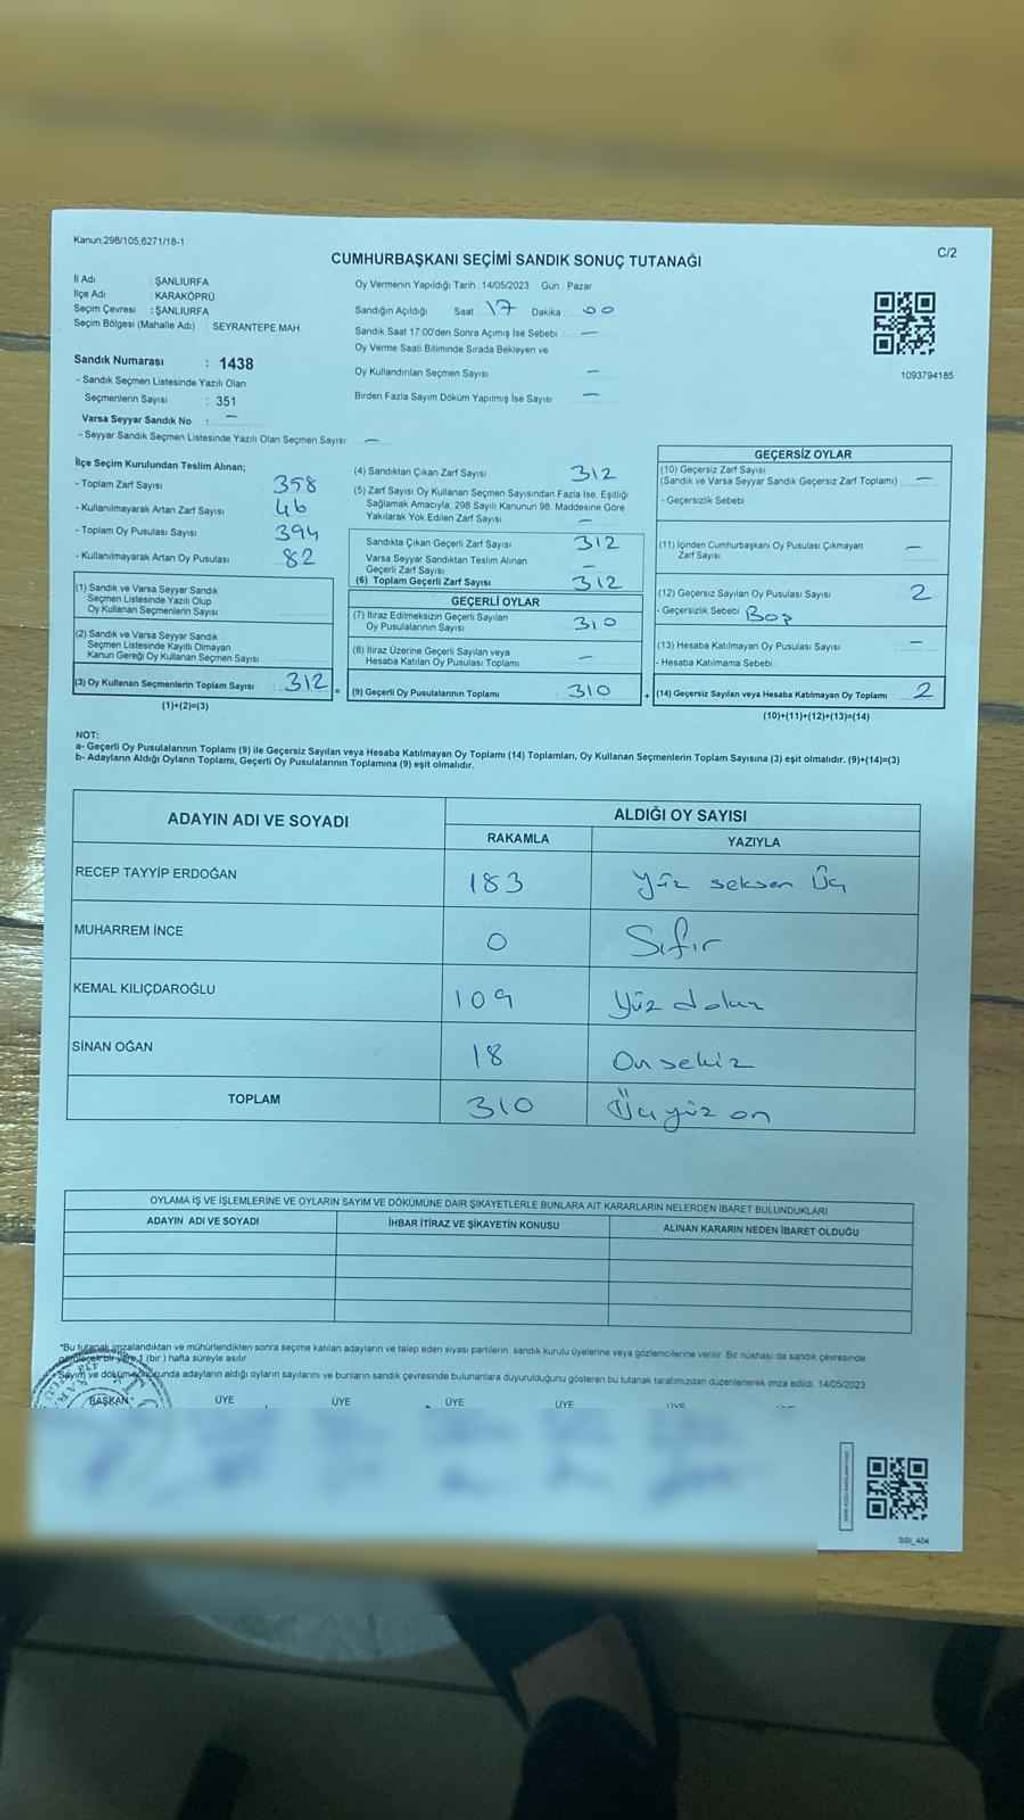 Kanun:298/105,6271/18-1
C/2
CUMHURBAŞKANI SEÇİMİ SANDIK SONUÇ TUTANAĞI
İl Adı : ŞANLIURFA
İlçe Adı : KARAKÖPRÜ
Seçim Çevresi : ŞANLIURFA
Seçim Bölgesi (Mahalle Adı) SEYRANTEPE MAH
Sandık Numarası : 1438
- Sandık Seçmen Listesinde Yazılı Olan
Seçmenlerin Sayısı : 351
Varsa Seyyar Sandık No : –
- Seyyar Sandık Seçmen Listesinde Yazılı Olan Seçmen Sayısı –
Oy Vermenin Yapıldığı Tarih : 14/05/2023 Gün : Pazar
Sandığın Açıldığı Saat 17 Dakika 00
Sandık Saat 17:00'den Sonra Açılmış İse Sebebi –
Oy Verme Saati Bitiminde Sırada Bekleyen ve
Oy Kullandırılan Seçmen Sayısı –
Birden Fazla Sayım Döküm Yapılmış İse Sayısı –
1093794185
İlçe Seçim Kurulundan Teslim Alınan;
- Toplam Zarf Sayısı 358
- Kullanılmayarak Artan Zarf Sayısı 46
- Toplam Oy Pusulası Sayısı 394
- Kullanılmayarak Artan Oy Pusulası 82
(1) Sandık ve Varsa Seyyar Sandık
Seçmen Listesinde Yazılı Olup
Oy Kullanan Seçmenlerin Sayısı
(2) Sandık ve Varsa Seyyar Sandık
Seçmen Listesinde Kayıtlı Olmayan
Kanun Gereği Oy Kullanan Seçmen Sayısı
(3) Oy Kullanan Seçmenlerin Toplam Sayısı 312 =
(1)+(2)=(3)
(4) Sandıktan Çıkan Zarf Sayısı 312
(5) Zarf Sayısı Oy Kullanan Seçmen Sayısından Fazla İse, Eşitliği
Sağlamak Amacıyla, 298 Sayılı Kanunun 98. Maddesine Göre
Yakılarak Yok Edilen Zarf Sayısı –
Sandıkta Çıkan Geçerli Zarf Sayısı 312
Varsa Seyyar Sandıktan Teslim Alınan
Geçerli Zarf Sayısı –
(6) Toplam Geçerli Zarf Sayısı 312
GEÇERLİ OYLAR
(7) İtiraz Edilmeksizin Geçerli Sayılan
Oy Pusulalarının Sayısı 310
(8) İtiraz Üzerine Geçerli Sayılan veya
Hesaba Katılan Oy Pusulası Toplamı –
(9) Geçerli Oy Pusulalarının Toplamı 310 +
GEÇERSİZ OYLAR
(10) Geçersiz Zarf Sayısı
(Sandık ve Varsa Seyyar Sandık Geçersiz Zarf Toplamı) –
- Geçersizlik Sebebi
(11) İçinden Cumhurbaşkanı Oy Pusulası Çıkmayan
Zarf Sayısı –
(12) Geçersiz Sayılan Oy Pusulası Sayısı 2
- Geçersizlik Sebebi Boş
(13) Hesaba Katılmayan Oy Pusulası Sayısı –
- Hesaba Katılmama Sebebi
(14) Geçersiz Sayılan veya Hesaba Katılmayan Oy Toplamı 2
(10)+(11)+(12)+(13)=(14)
NOT:
a- Geçerli Oy Pusulalarının Toplamı (9) ile Geçersiz Sayılan veya Hesaba Katılmayan Oy Toplamı (14) Toplamları, Oy Kullanan Seçmenlerin Toplam Sayısına (3) eşit olmalıdır. (9)+(14)=(3)
b- Adayların Aldığı Oyların Toplamı, Geçerli Oy Pusulalarının Toplamına (9) eşit olmalıdır.
ADAYIN ADI VE SOYADI ALDIĞI OY SAYISI
RAKAMLA YAZIYLA
RECEP TAYYİP ERDOĞAN 183 Yüz seksen Üç
MUHARREM İNCE 0 Sıfır
KEMAL KILIÇDAROĞLU 109 Yüz dokuz
SİNAN OĞAN 18 On sekiz
TOPLAM 310 Üçyüz on
OYLAMA İŞ VE İŞLEMLERİNE VE OYLARIN SAYIM VE DÖKÜMÜNE DAİR ŞİKAYETLERLE BUNLARA AİT KARARLARIN NELERDEN İBARET BULUNDUKLARI
ADAYIN ADI VE SOYADI İHBAR İTİRAZ VE ŞİKAYETİN KONUSU ALINAN KARARIN NEDEN İBARET OLDUĞU
*Bu tutanak imzalandıktan ve mühürlendikten sonra seçime katılan adayların ve talep eden siyasi partilerin, sandık kurulu üyelerine veya gözlemcilerine verilir. Bir nüshası da sandık çevresinde
bir yere 1 (bir) hafta süreyle asılır
Sayım ve dökümü sonunda adayların aldığı oyların sayılarını ve bunların sandık çevresinde bulunanlara duyurulduğunu gösteren bu tutanak tarafımızdan düzenlenerek imza edildi. 14/05/2023
BAŞKAN ÜYE ÜYE ÜYE ÜYE ÜYE